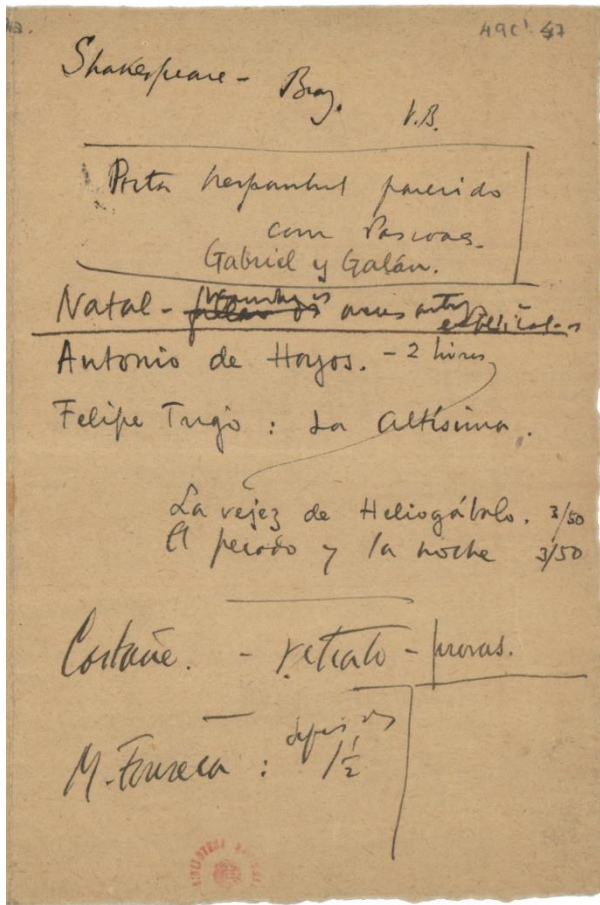 49C¹ 47
Shakespeare – Braz.
V.B.
Poeta hespanhol parecido
com Pascoaes.
Gabriel y Galán.
Natal –
Antonio de Hoyos. – 2 livros
Felipe Trigo : La Altísima.
La vejez de Heliogábalo. 3/50
El pecado y la noche 3/50
– retrato – provas.
M. Fonseca : depois das
1 1/2
BIBLIOTECA NACIONAL